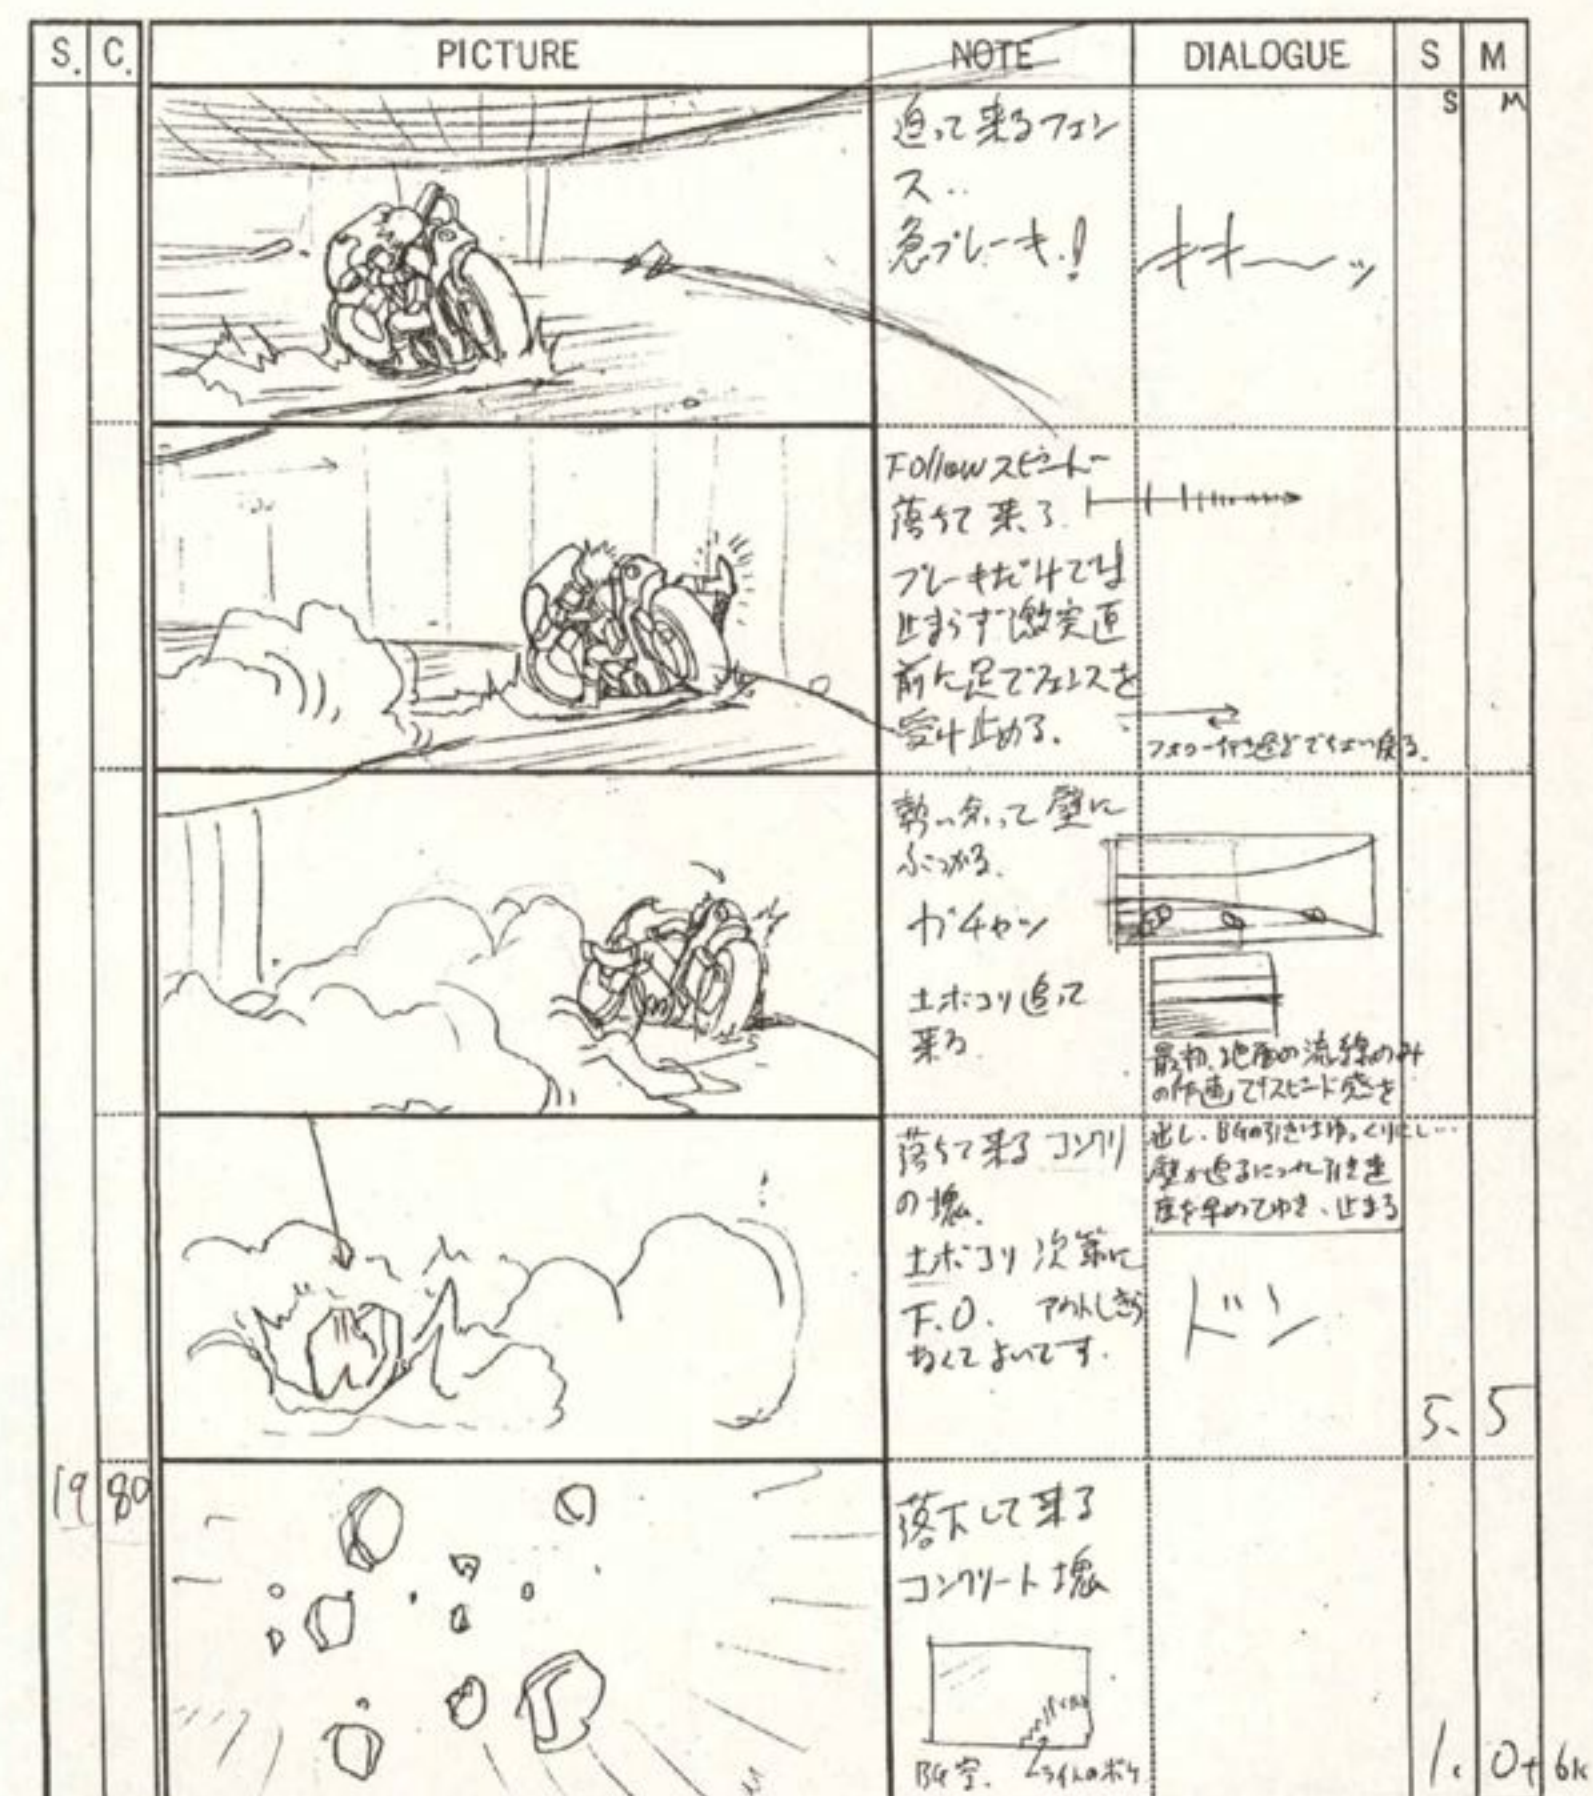 S. C. PICTURE NOTE DIALOGUE S M
S M
迫って来るフェン
ス‥
急ブレーキ!
キキ〜ッ
Followスピード
落ちて来る
ブレーキだけでは
止まらず激突直
前に足でフェンスを
受け止める。
フォロー行き過ぎてちょい戻る。
勢い余って壁に
ぶつかる。
ガチャン
土ボコリ追って
来る
最初、地面の流線のみ
の作画でスピード感を
出し、BGの引きはゆっくりにし…
壁が迫るにつれ引き速
度を早めてゆき、止まる
落ちて来るコンクリ
の塊。
土ボコリ次第に
F.O. アウトしきら
なくてよいです.
ドン
5. 5
19 80
落下して来る
コンクリート塊
BG空.
1. 0+6k